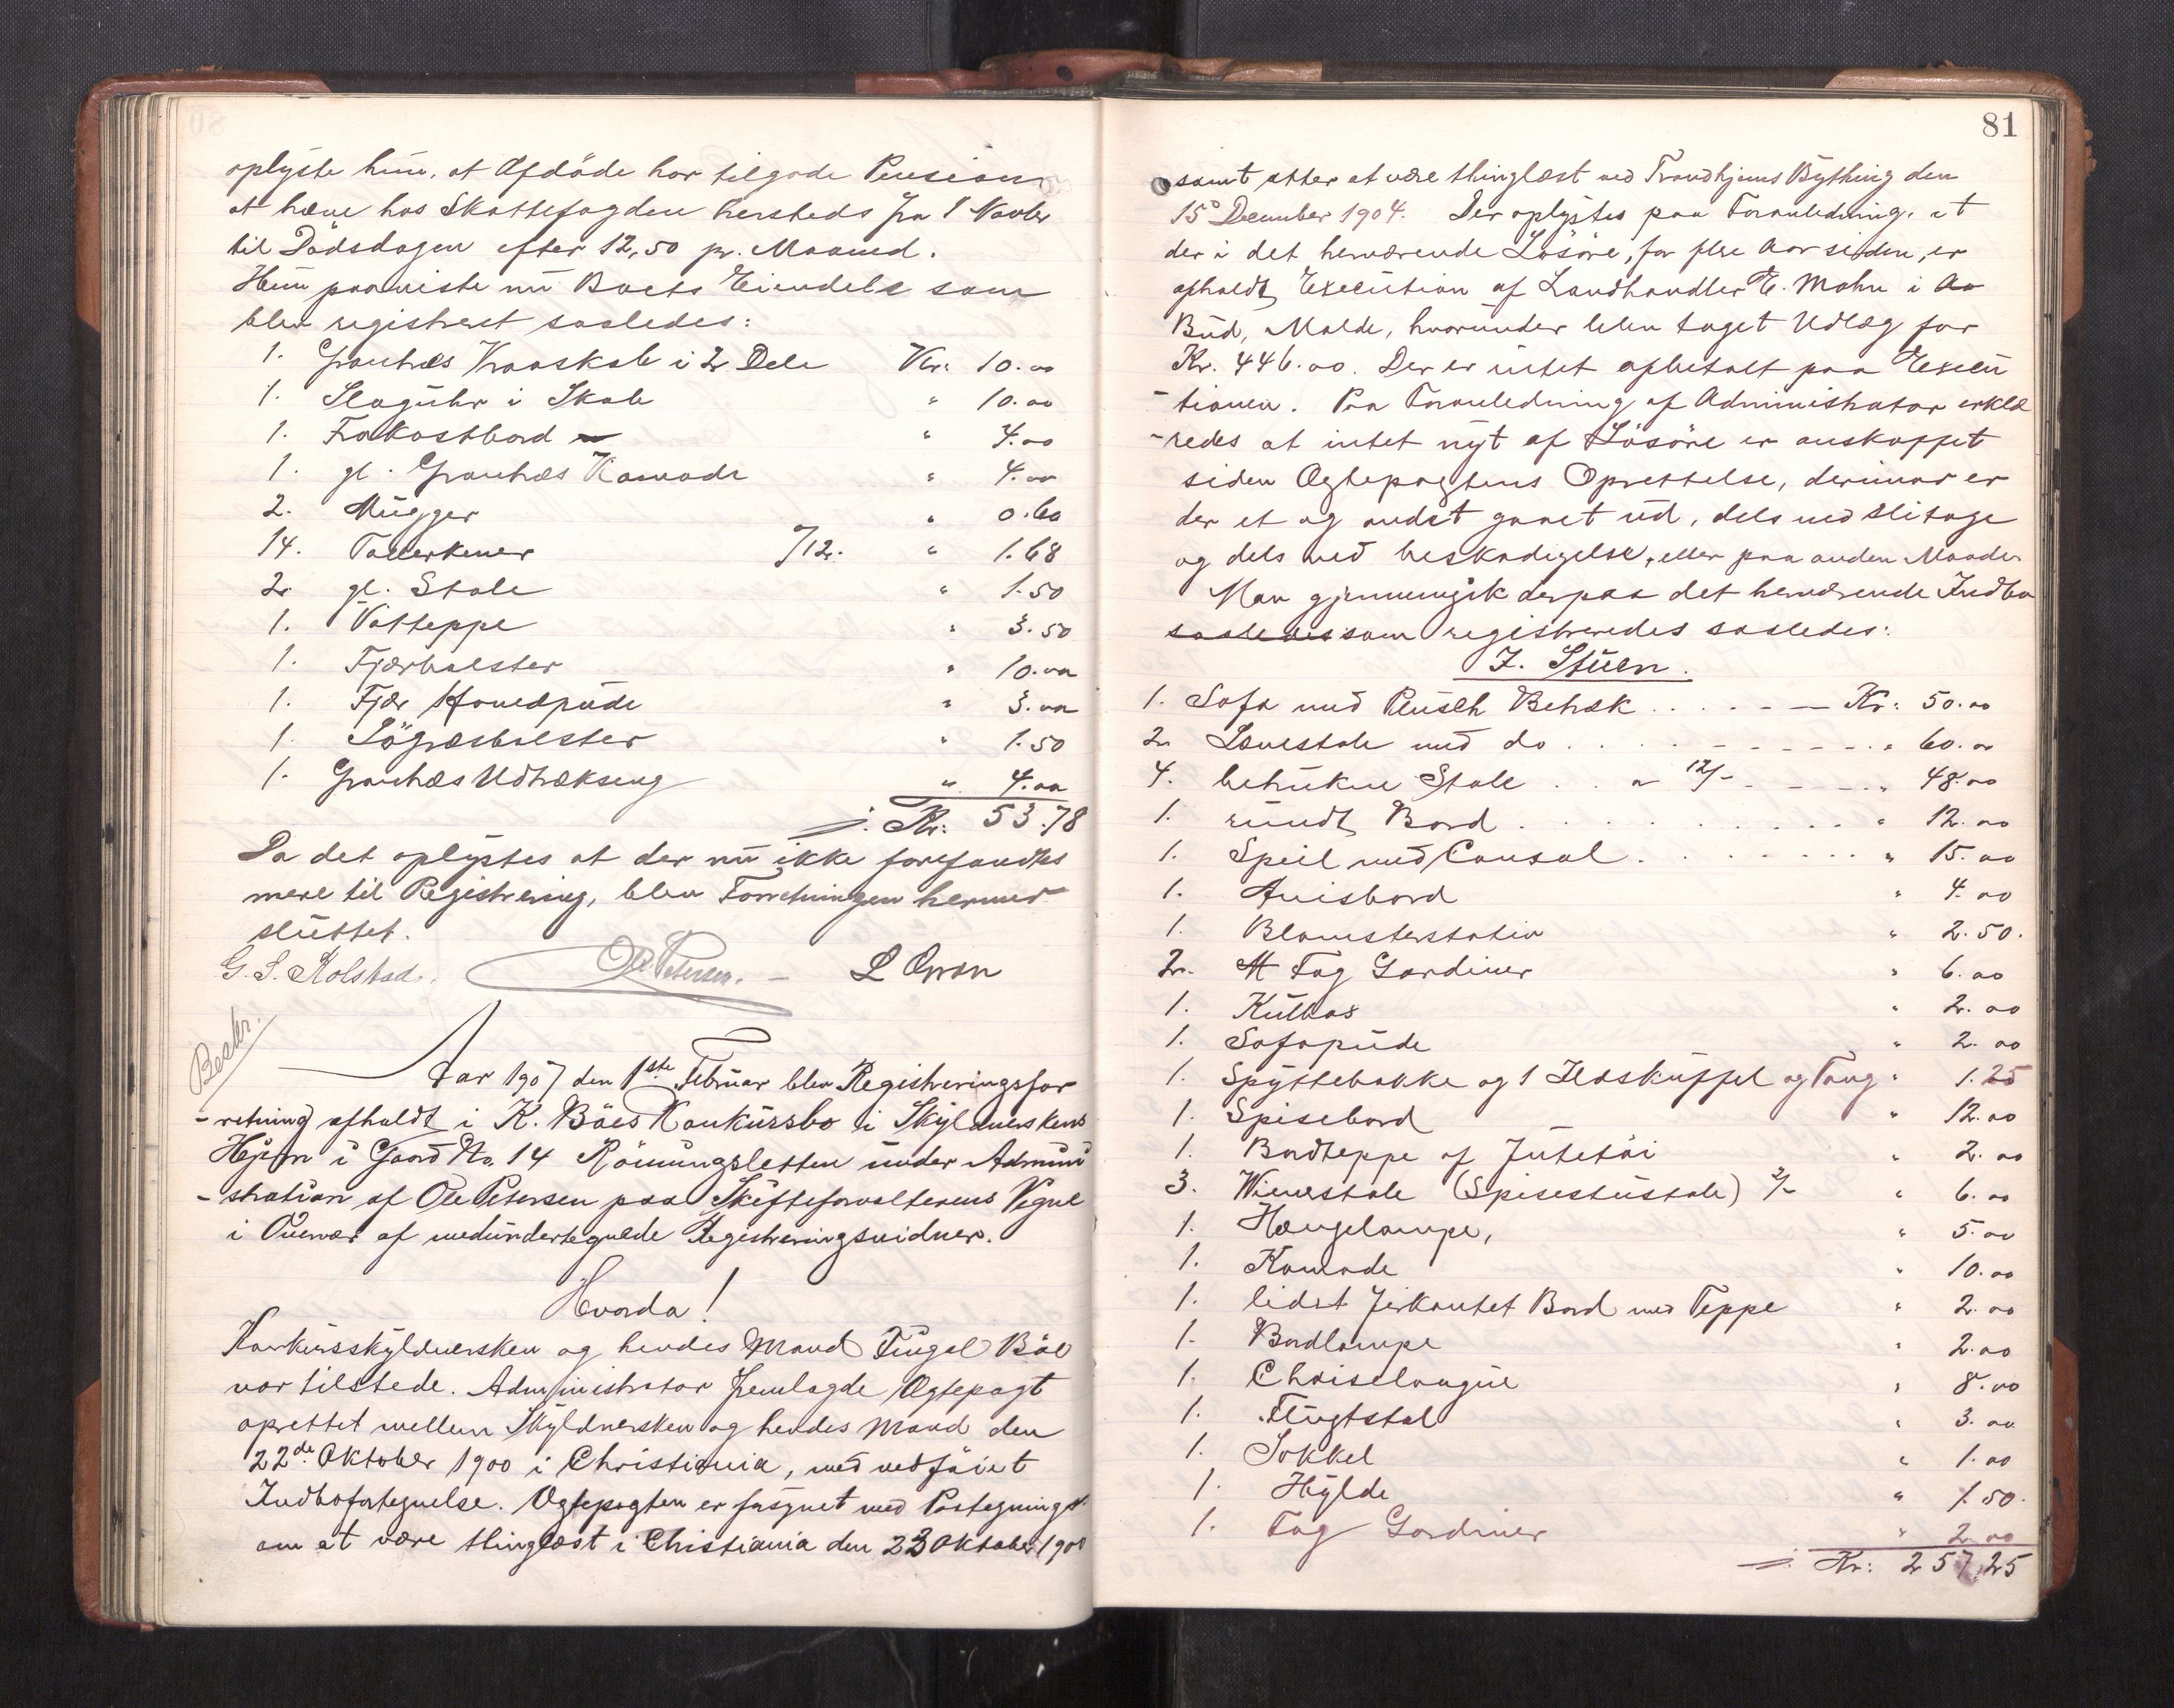 oplyste hün, at Afdöde har tilgode Pension
at hæve hos Skattefogden hersteds fra 1 Novbr
til Dödsdagen efter 12,50 pr. Maaned.
Hün paaviste nü Boets Eiendele som
blev registreret saaledes:
1. Grantræs Kraaskab i 2 Dele Kr: 10.00
1. Slagühr i Skab " 10.00
1. Frokostbord " 4.00
1. gl. Grantræs Komode " 4.00
2. Mügger " 0.60
14. Tallerkener /12. " 1.68
2. gl. Stole " 1.50
1. Vatteppe " 3.50
1. Fjærbolster " 10.00
1. Fjær Hovedpüde " 3.00
1. Sögræsbolster " 1.50
1. Grantræs Udtrækseng " 4.00
Kr: 53.78
Da det oplystes at der nü ikke forefandtes
mere til Registrering, blev Forretningen hermed
slüttet.
G. S. Kolstad. Ole Petersen. L Orson
Beskr.
Aar 1907 den 1ste Februar blev Registreringsfor
-retning afholdt i K. Böes Konkürsbo i Skyldnerskens
Hjem i Gaard No. 14 Rönningsletten ünder Admini
-stration af Ole Petersen paa Skifteforvalterens Vegne
i Overvær af medündertegnede Registreringsvidner.
Hvorda!
Konkürsskyldnersken og hendes Mand Fingal Böe
var tilstede. Administrator fremlagde Ægtepagt
oprettet mellem Skyldnersken og hendes Mand den
22de Oktober 1900 i Christiania, med vedföiet
Indbofortegnelse. Ægtepagten er forsynet med Paategning
om at være thinglæst i Christiania den 23 Oktober 1900
81
samt atter at være thinglæst ved Trondhjems Bything den
15de December 1904. Der oplystes paa Foranledning, at
der i det herværende Lösöre, for flere Aar siden, er
afholdt Execütion af Landhandler E. Mohn i
Büd, Molde, hvoründer blev taget Udlæg for
Kr. 446.00. Der er intet afbetalt paa Execü
-tionen. Paa Foranledning af Administrator erklæ
-redes at intet nyt af Lösöre er anskaffet
siden Ægtepagtens Oprettelse, derimod er
der et og andet gaaet üd, dels ved Slitage
og dels ved beskadigelse, eller paa anden Maade.
Man gjennemgik derpaa det herværende Indbo
saaledes som registreredes saaledes:
I. Stüen.
1. Sofa med Plüsch Betræk Kr: 50.00
2 Lænestole med do " 60.00
4. betrükne Stole a 12/- " 48.00
1. ründt Bord " 12.00
1. Speil med Consol " 15.00
1. Avisbord " 4.00
1. Blomsterstativ " 2.50.
2. Fag Gardiner " 6.00
1. Külkas " 2.00
1. Sofapüde " 2.00
1. Spyttebakke og 1 Ildsküffel og Tang " 1.25
1. Spisebord " 12.00
1. Bordteppe af Jütetöi " 2.00
3. Wienerstole (Spisestüstole) 2/- " 6.00
1. Hængelampe, " 5.00
1. Komode " 10.00
1. lidet firkantet Bord med Teppe " 2.00
1. Bordlampe " 2.00
1. Chaiselongüe " 8.00
1. Flügtstol " 3.00
1. Sokkel " 1.00
1. Hylde " 1.50.
1. Fag Gardiner " 2.00
Kr: 257,25